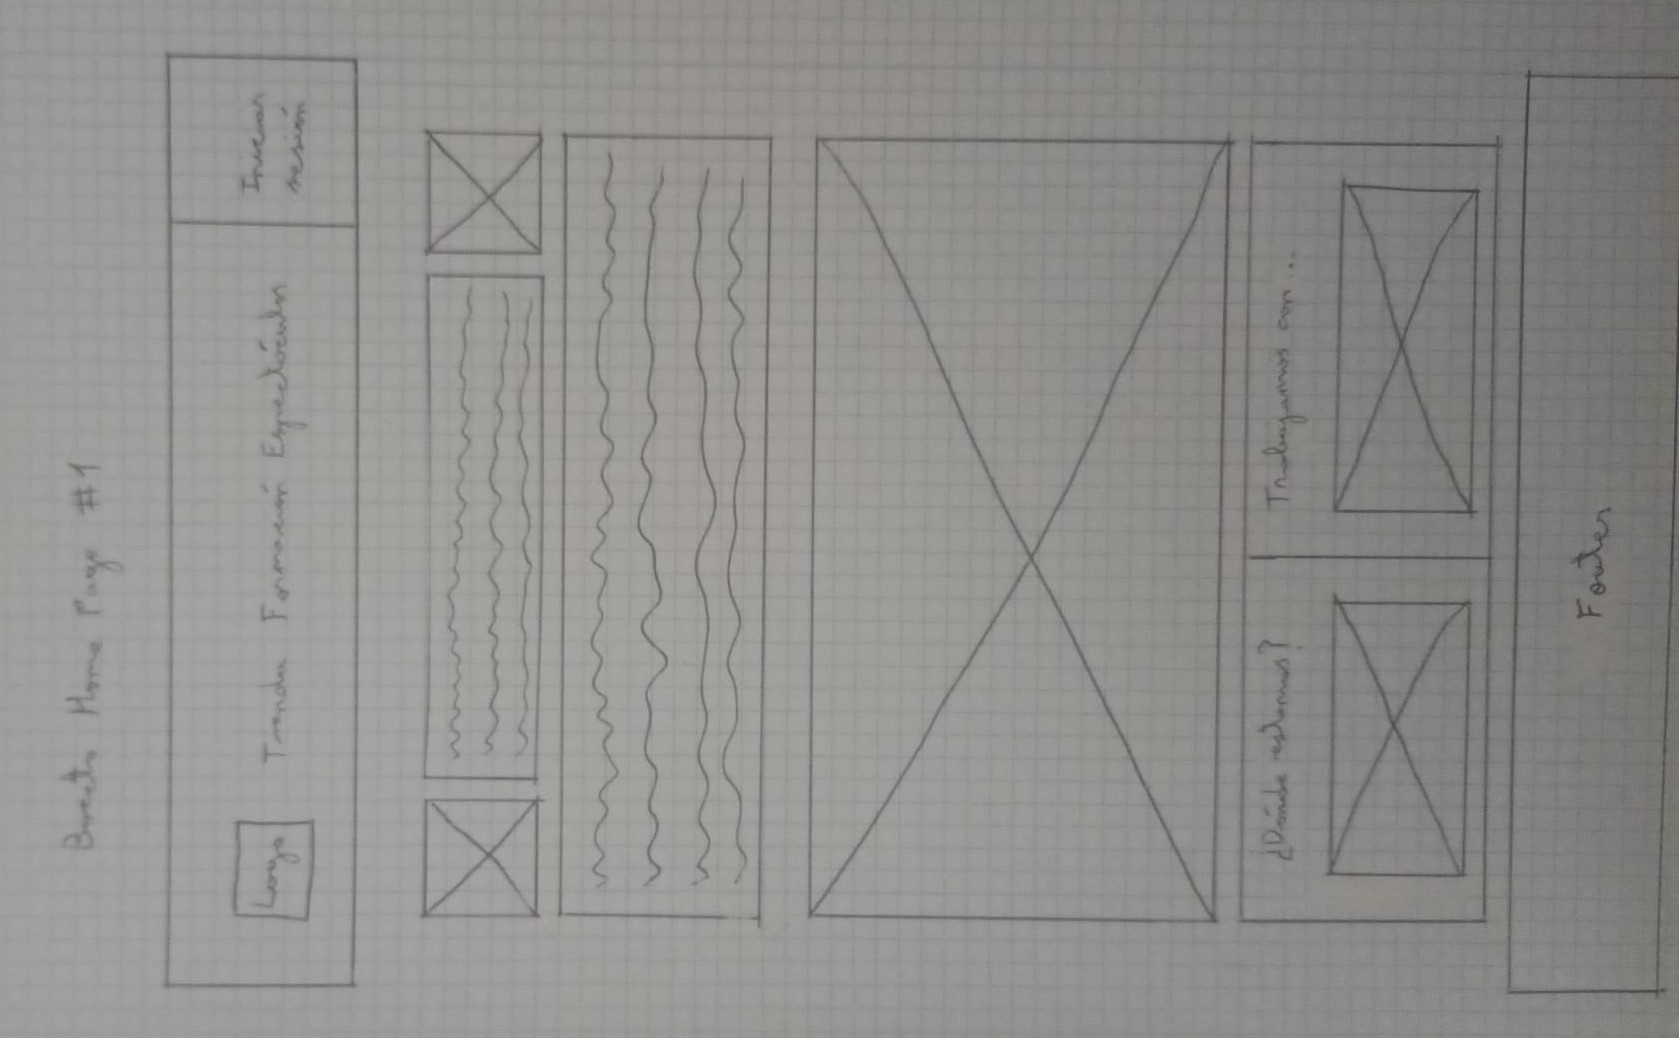 Boceto Home Page #1
Logo
Tienda Formación Espectáculos
Iniciar
sesión
¿Dónde estamos?
Trabajamos con...
Footer